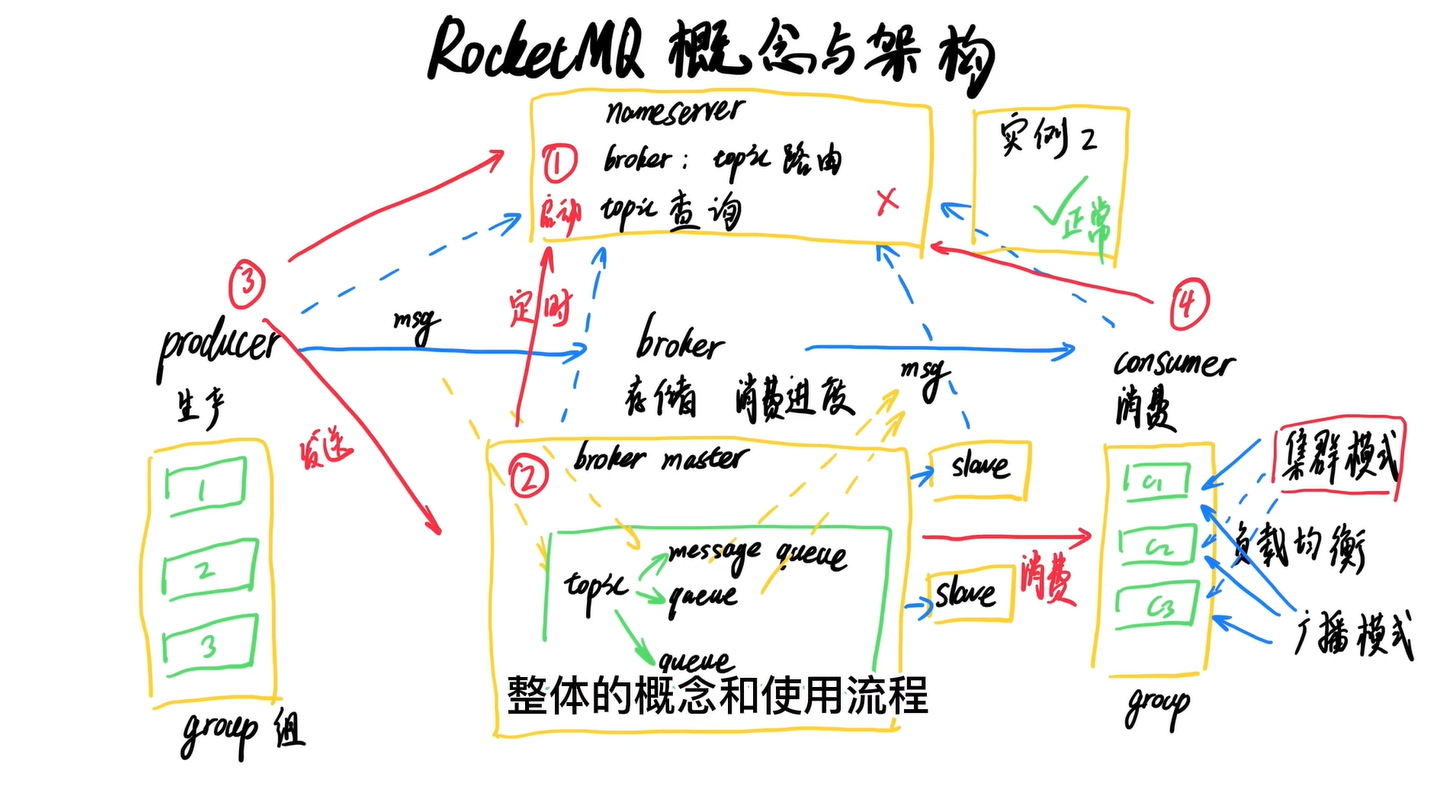 RocketMQ 概念与架构
nameserver
① broker: topic 路由
启动 topic 查询 ×
实例2
✓正常
③
producer
生产
msg
定时
broker
存储 消费进度
msg
④
consumer
消费
发送
1
2
3
group 组
② broker master
topic
message queue
queue
queue
slave
slave
消费
C1
C2
C3
group
集群模式
负载均衡
广播模式
整体的概念和使用流程